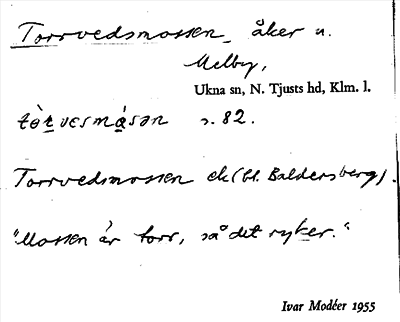 Torrvedsmossen, åker u.
Melby,
Ukna sn, N. Tjusts hd, Klm. l.
tòrvesmásən s. 82.
Torrvedsmossen ek (bl. Baldersberg).
"Mossen är torr, så det ryker."
Ivar Modéer 1955